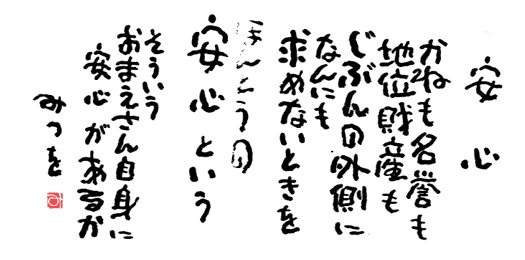 安心
かねも名誉も
地位財産も
じぶんの外側に
なんにも
求めないときを
ほんとうの
安心という
そういう
おまえさん自身に
安心があるか
みつを